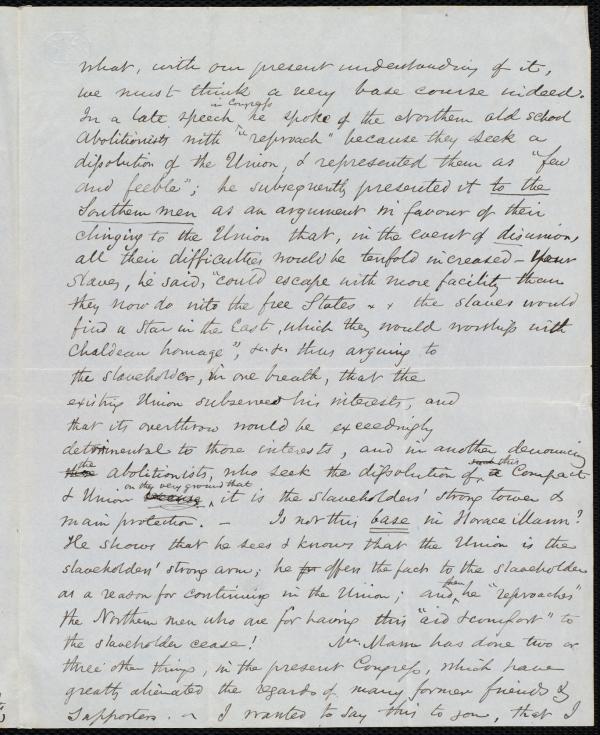 what, with our present understanding of it,
we must think a very base course indeed.
In a late speech in Congress he spoke of the Northern old school
Abolitionists with "reproach" because they seek a
dissolution of the Union, & represented them as "few
and feeble"; he subsequently presented it to the
Southern men as an argument in favour of their
clinging to the Union that, in the event of disunion,
all their difficulties would be tenfold increased – Your
slaves, he said, "could escape with more facility than
they now do into the free States x x the slaves would
find a Star in the East, which they would worship with
Chaldean homage", &c. &c. thus arguing to
the slaveholder, in one breath, that the
existing Union subserved his interests, and
that its overthrow would be exceedingly
detrimental to those interests, and in another denouncing
the abolitionists, who seek the dissolution of this Compact
& Union on the very ground that it is the slaveholders' strong tower &
main protection. – Is not this base in Horace Mann?
He shows that he sees & knows that the Union is the
slaveholders' strong arm; he offers the fact to the slaveholder
as a reason for continuing in the Union; and then he "reproaches"
the Northern men who are for having this "aid & comfort" to
the slaveholder cease! Mr. Mann has done two or
three other things, in the present Congress, which have
greatly alienated the regards of many former friends &
supporters. – I wanted to say this to you, that I